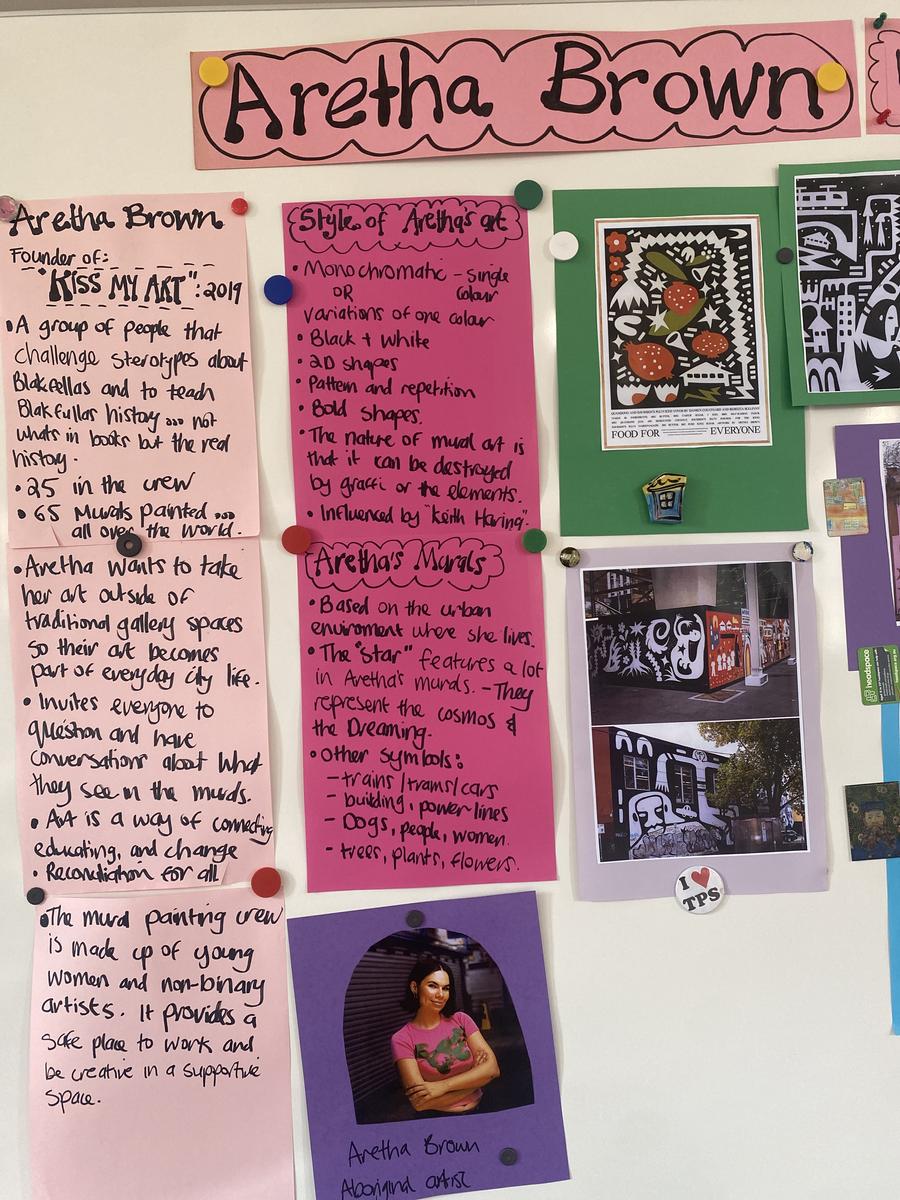 Aretha Brown
Aretha Brown
Founder of:
"KISS MY ART": 2019
• A group of people that
challenge sterotypes about
Blakfellas and to teach
Blakfullas history ... not
whats in books but the real
history.
• 25 in the crew
• 65 Murals painted ...
all over the world.
• Aretha wants to take
her art outside of
traditional gallery spaces
so their art becomes
part of everyday city life.
• Invites everyone to
question and have
conversations about what
they see in the murals.
• Art is a way of connecting
educating, and change
• Reconciliation for all
• The mural painting crew
is made up of young
women and non-binary
artists. It provides a
safe place to work and
be creative in a supportive
space.
Style of Aretha's art
• Monochromatic - single
OR colour
variations of one colour
• Black + white
• 2D shapes
• Pattern and repetition
• Bold shapes.
• The nature of mural art is
that it can be destroyed
by graffi or the elements.
• Influenced by "Keith Haring".
Aretha's Murals
• Based on the urban
enviroment where she lives.
• The "star" features a lot
in Aretha's murals. - They
represent the cosmos &
the Dreaming.
• Other symbols:
- trains/trams/cars
- building, power lines
- Dogs, people, women.
- trees, plants, flowers.
Aretha Brown
Aboriginal artist
FOOD FOR EVERYONE
I ♥
TPS
headspace